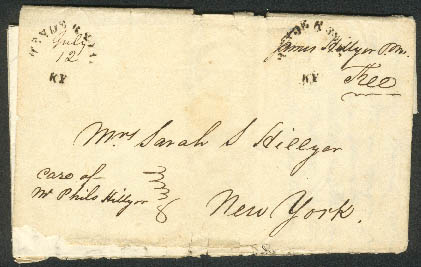 HENDERSON
July
12
KY
HENDERSON
James Hillyer P.M.
KY
Free
Mrs Sarah S Hillyer
care of
Mr Philo Hillyer
New York.